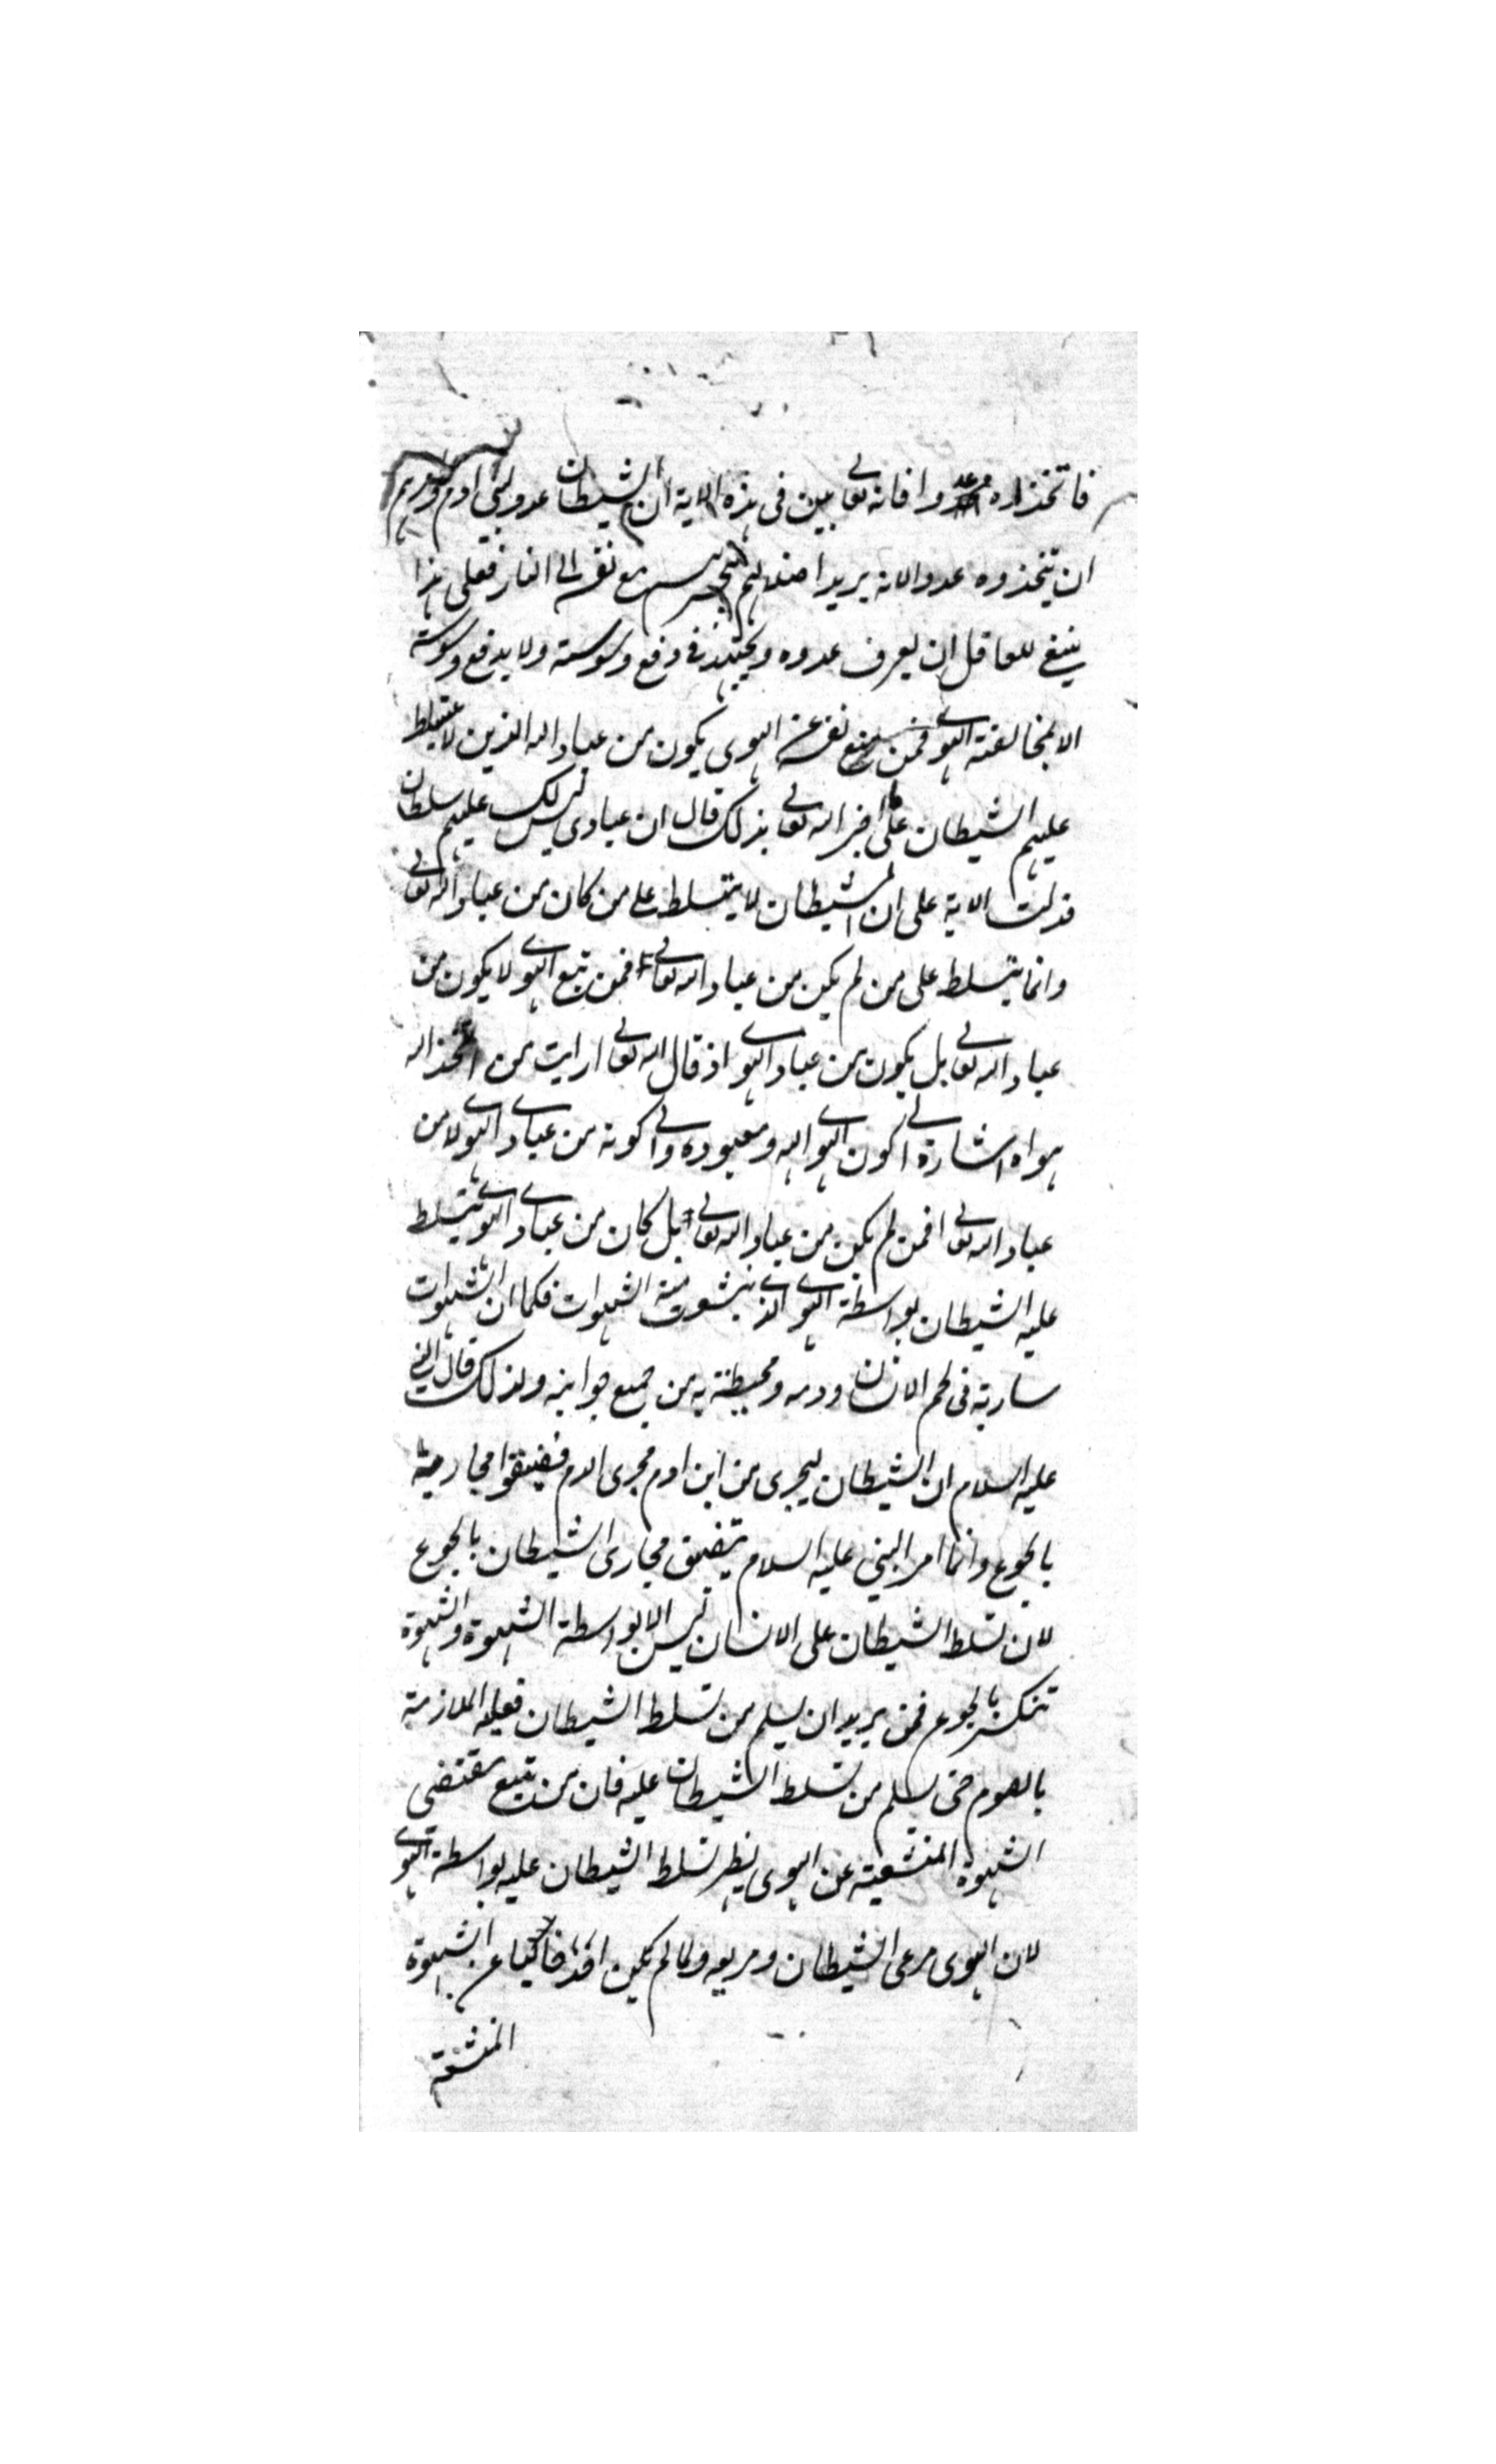 فاتخذاره عدوا فانه تعالى بين فى هذه الاية ان الشيطان عدو لبنى ادم وامرهم
ان يتخذوه عدوا لانه يريد اضلالهم ليجرهم مع نفسه الى النار فعلى هذا
ينبغى للعاقل ان يعرف عدوه ويجتهد فى دفع وسوسته ولا يدفع وسوسته
الا بمخالفته الهوى فمن يمنع نفسه عن الهوى يكون من عباد الله الذين لا يتسلط
عليهم الشيطان على ما اخبر الله تعالى بذلك قال ان عبادى ليس لك عليهم سلطان
فدلت الاية على ان الشيطان لا يتسلط على من كان من عباد الله تعالى
وانما يتسلط على من لم يكن من عباد الله تعالى فمن تبع الهوى لا يكون من
عباد الله تعالى بل يكون من عباد الهوى اذ قال الله تعالى ارايت من اتخذ اله
هواه اشارة الى كون الهوى الهه ومعبوده والى كونه من عبادى الهوى لا من
عباد الله تعالى فمن لم يكن من عباد الله تعالى بل كان من عبادى الهوى يتسلط
عليه الشيطان بواسطة الهوى الذى ينشعب منه الشهوات فكما ان الشهوات
سارية فى لحم الانسان ودمه ومحيطة به من جميع جوانبه ولذلك قال النبى
عليه السلام ان الشيطان ليجرى من ابن ادم مجرى الدم فضيقوا مجاريه
بالجوع وانما امر النبى عليه السلام بتضيق مجارى الشيطان بالجوع
لان تسلط الشيطان على الانسان ليس الا بواسطة الشهوة والشهوة
تنكسر بالجوع فمن يريد ان يسلم من تسلط الشيطان فعليه الملازمة
بالصوم حتى يسلم من تسلط الشيطان عليه فان من يتبع مقتضى
الشهوة المنشعبة عن الهوى يظهر تسلط الشيطان عليه بواسطة الهوى
لان الهوى مرعى الشيطان ومربعه ولما لم يكن احد خاليا عن الشهوة
المنشعبة